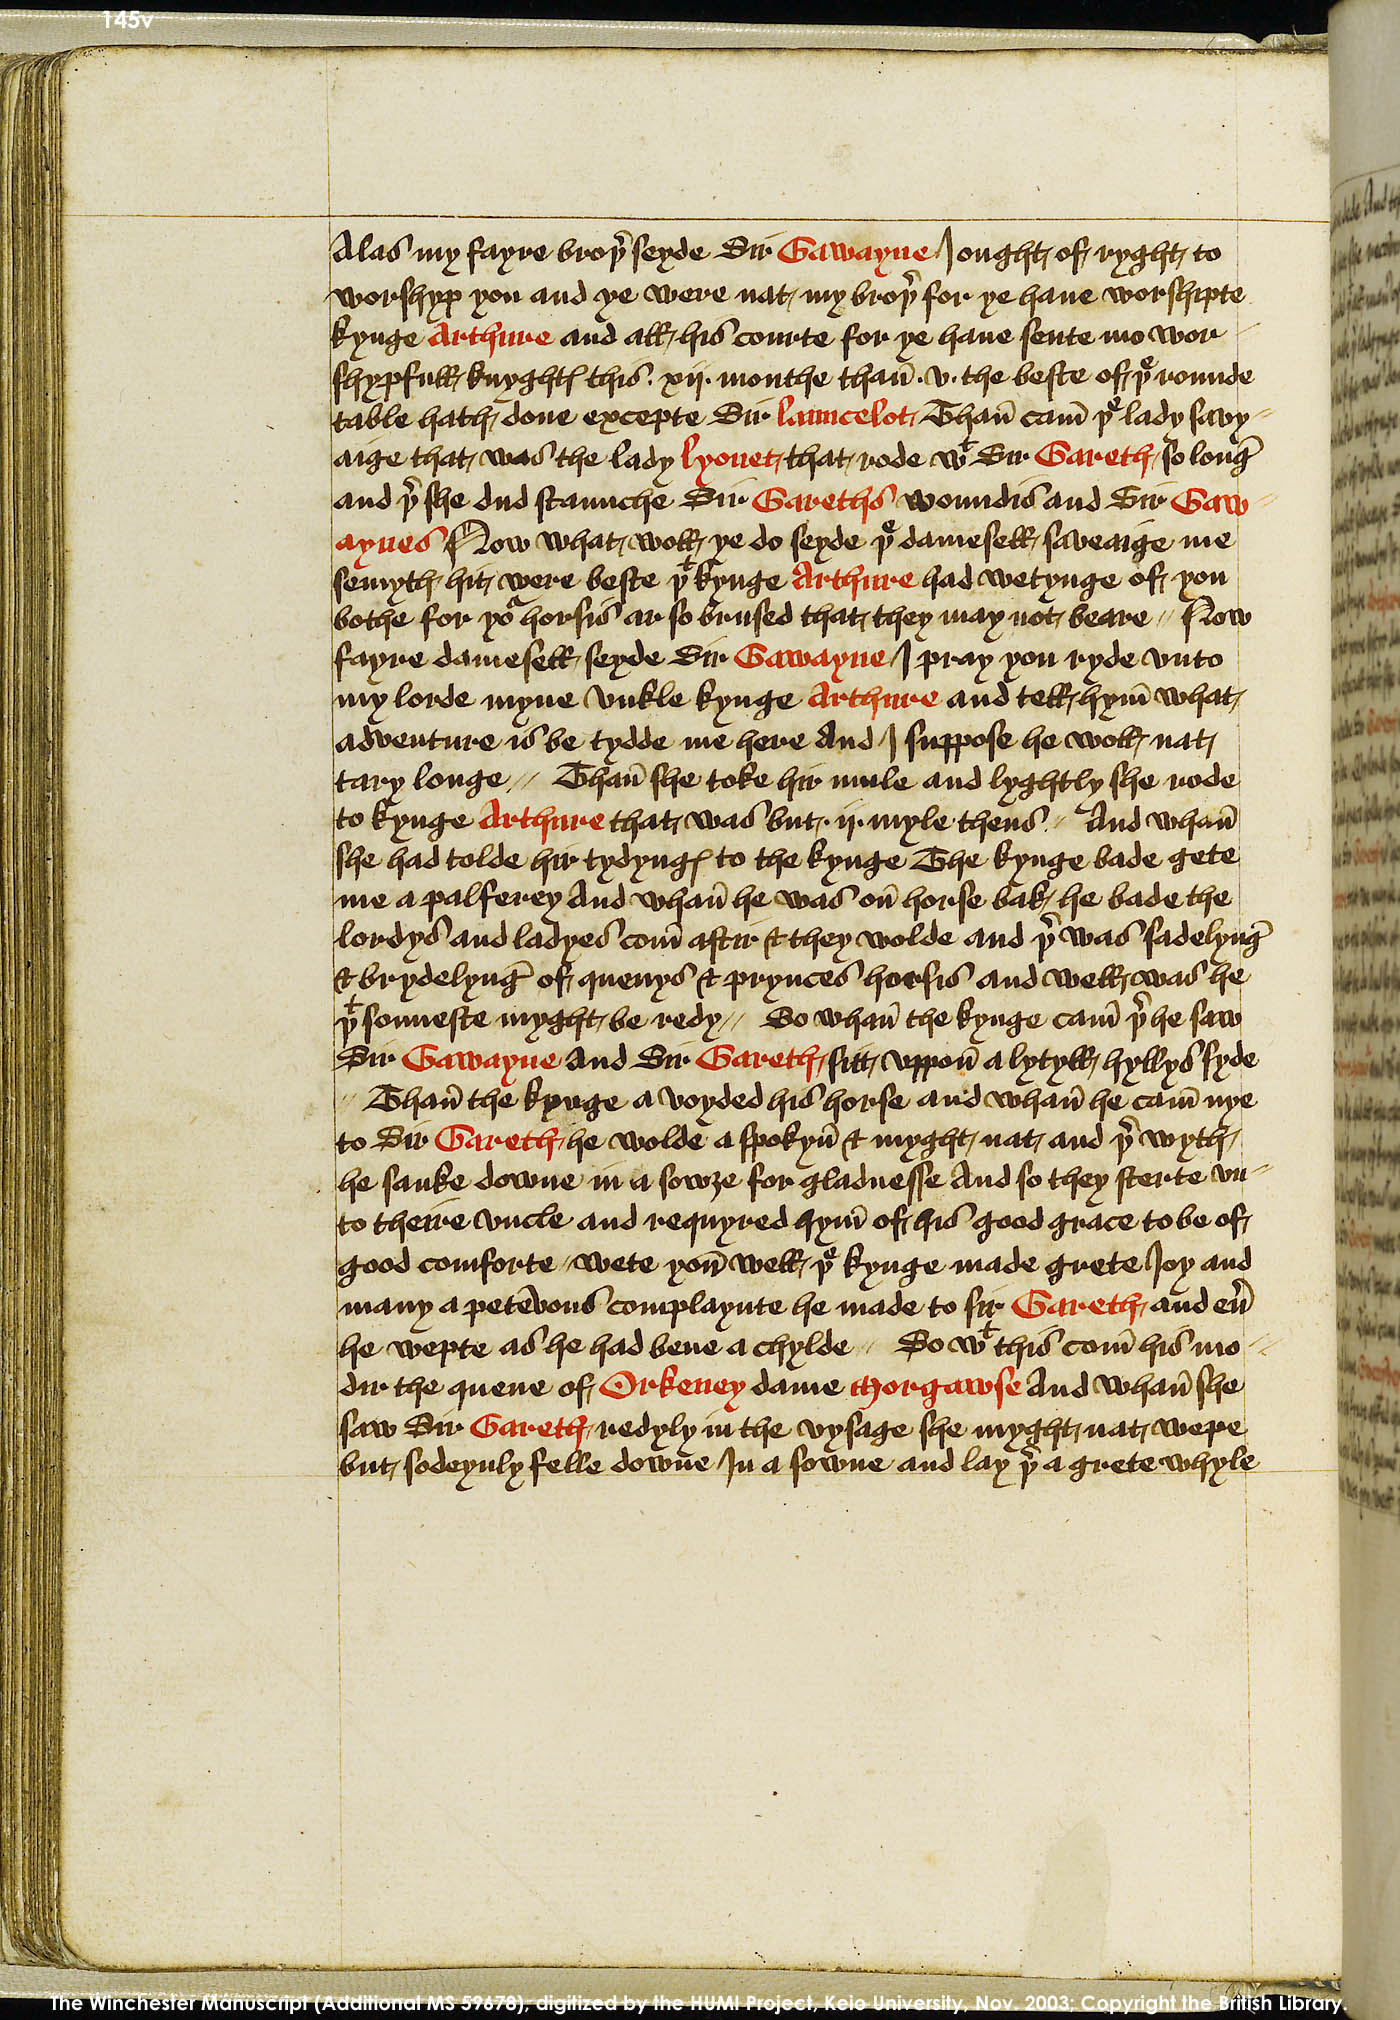 145v
Alas my fayre broþ̉ seyde Sir Gawayne I ought of ryght to
worshyp you and ye were nat my broþ̉ for ye haue worshipte
kynge Arthure and all his courte for ye haue sente mo wor-
shypfull knyghtꝭ this .xij. monthe than̄ .v. the beste of þͤ rounde
table hath done excepte Sir launcelot Than̄ cam̄ þͤ lady savy-
aige that was the lady lyonet that rode wᵗ Sir Gareth so long̉
and þ̉ she dud staunche Sir Gareths woundis and Sir Gaw-
aynes Now what woll ye do seyde þͤ damesell saveaige me
semyth hit were beste þᵗ kynge Arthure had wetynge of you
bothe for yoᷣ horsis ar so brused that they may not beare // Now
fayre damesell seyde Sir Gawayne I pray you ryde vnto
my lorde myne vnkle kynge Arthure and tell hym̄ what
adventure is be tydde me here And I suppose he woll nat
tary longe // Than̄ she toke hir mule and lyghtly she rode
to kynge Arthure that was but .ij. myle thens // And whan̄
she had tolde hir tydyngꝭ to the kynge The kynge bade gete
me a palferey And whan̄ he was on̄ horse bak he bade the
lordys and ladyes com̄ aftir & they wolde and þ̉ was sadelyng̉
& brydelyng̉ of quenys & prynces horsis and well was he
þᵗ sonneste myght be redy // So whan̄ the kynge cam̄ þ̉ he saw
Sir Gawayne And Sir Gareth sitt vppon̄ a lytyll hyllys syde
// Than̄ the kynge a voyded his horse and whan̄ he cam̄ nye
to Sir Gareth he wolde a spokyn̄ & myght nat and þ̉ wyth
he sanke downe in a sowȝe for gladnesse And so they sterte vn-
to theire vncle and requyred hym̄ of his good grace to be of
good comforte // wete youn̄ well þͤ kynge made grete Ioy and
many a petēvous complaynte he made to sir Gareth and eủ
he wepte as he had bene a chylde // So wᵗ this com̄ his mo-
dir the quene of Orkeney dame Morgawse And whan̄ she
saw Sir Gareth redyly in the vysage she myght nat wepe
but sodeynly felle downe In a sowne and lay þ̉ a grete whyle
The Winchester Manuscript (Additional MS 59678), digitized by the HUMI Project, Keio University, Nov. 2003; Copyright the British Library.